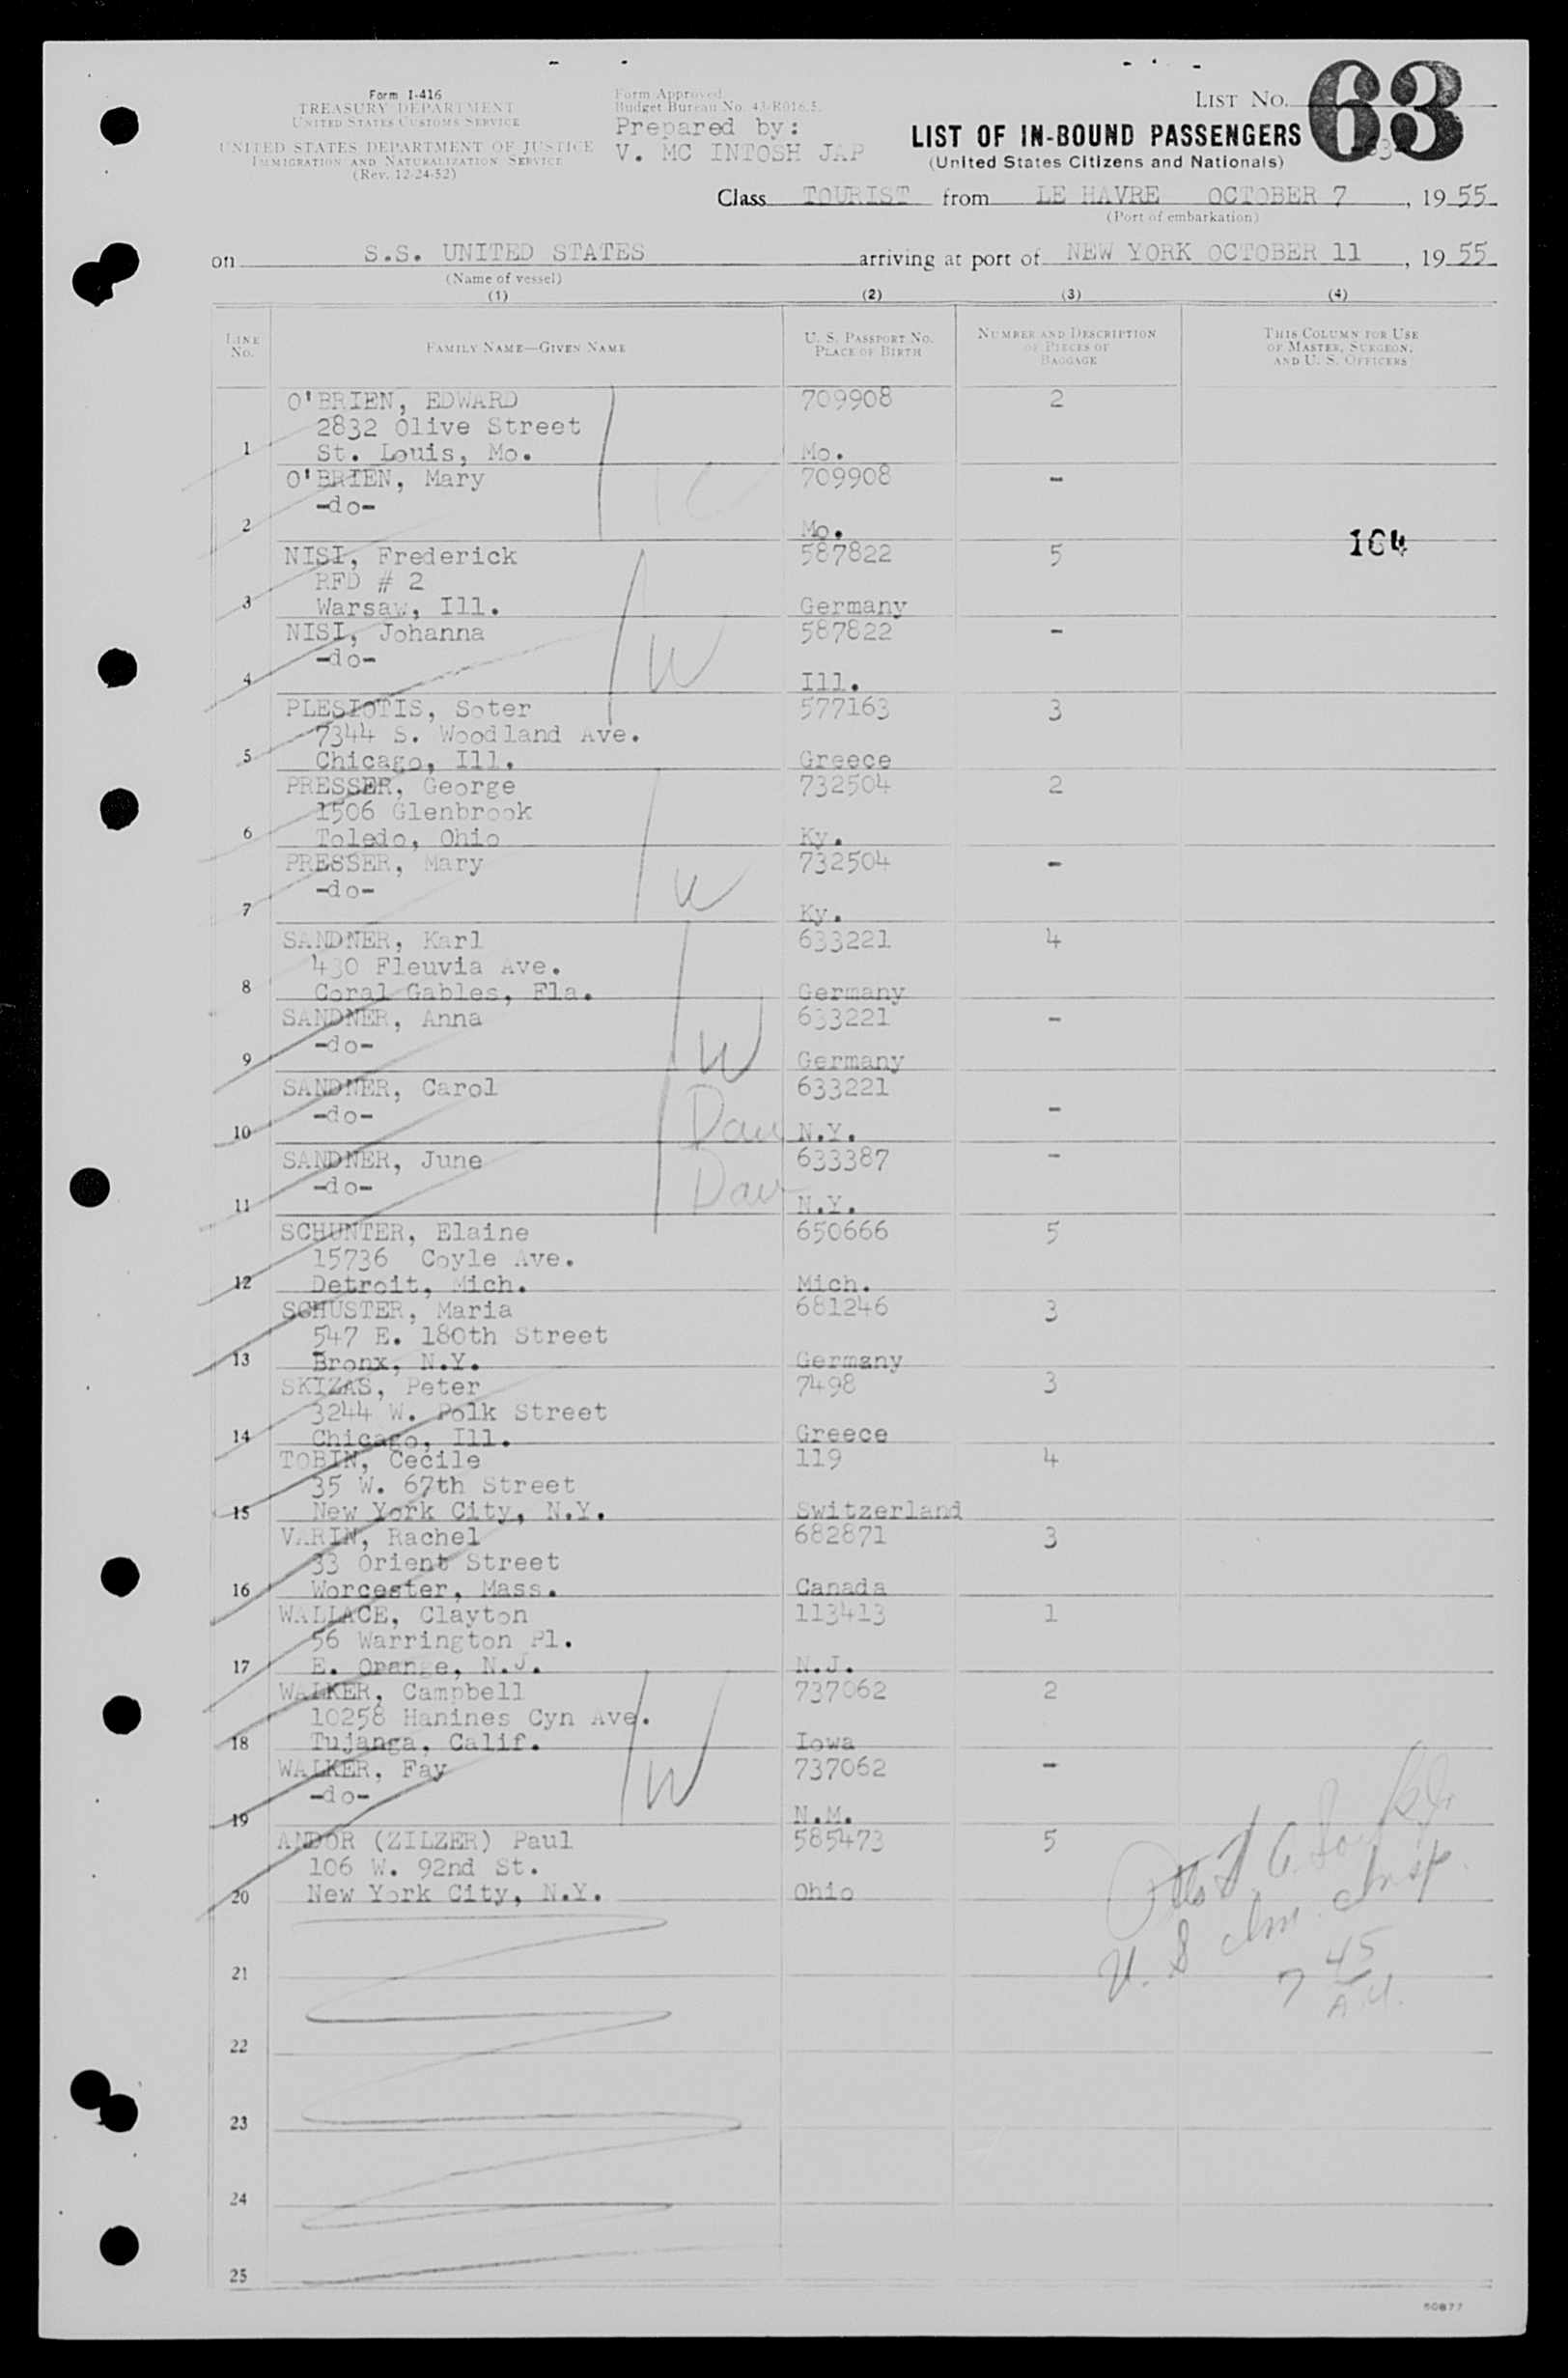 Form I-416
TREASURY DEPARTMENT
UNITED STATES CUSTOMS SERVICE
UNITED STATES DEPARTMENT OF JUSTICE
IMMIGRATION AND NATURALIZATION SERVICE
(Rev. 12-24-52)
Form Approved
Budget Bureau No. 43-R016.5.
Prepared by:
V. MC INTOSH JAP
LIST NO. 63
LIST OF IN-BOUND PASSENGERS
(United States Citizens and Nationals)
Class TOURIST from LE HAVRE OCTOBER 7, 1955
(Port of embarkation)
on S.S. UNITED STATES arriving at port of NEW YORK OCTOBER 11, 1955
(Name of vessel)
(1) (2) (3) (4)
LINE NO.
FAMILY NAME—GIVEN NAME
U. S. PASSPORT NO.
PLACE OF BIRTH
NUMBER AND DESCRIPTION
OF PIECES OF
BAGGAGE
THIS COLUMN FOR USE
OF MASTER, SURGEON,
AND U. S. OFFICERS
O'BRIEN, EDWARD 709908 2
2832 Olive Street
1 St. Louis, Mo. Mo.
O'BRIEN, Mary 709908 -
-do-
2 Mo.
164
NISI, Frederick 587822 5
RFD # 2
3 Warsaw, Ill. Germany
NISI, Johanna 587822 -
-do- W
4 Ill.
PLESIOTIS, Soter 577163 3
7344 S. Woodland Ave.
5 Chicago, Ill. Greece
PRESSER, George 732504 2
1506 Glenbrook
6 Toledo, Ohio Ky.
PRESSER, Mary 732504 -
-do- W
7 Ky.
SANDNER, Karl 633221 4
430 Fleuvia Ave.
8 Coral Gables, Fla. Germany
SANDNER, Anna 633221 -
-do- W
9 Germany
SANDNER, Carol 633221
-do- Dau -
10 N.Y.
SANDNER, June 633387 -
-do- Dau
11 N.Y.
SCHUNTER, Elaine 650666 5
15736 Coyle Ave.
12 Detroit, Mich. Mich.
SCHUSTER, Maria 681246 3
547 E. 180th Street
13 Bronx, N.Y. Germany
SKIZAS, Peter 7498 3
3244 W. Polk Street
14 Chicago, Ill. Greece
TOBIN, Cecile 119 4
35 W. 67th Street
15 New York City, N.Y. Switzerland
VARIN, Rachel 682871 3
33 Orient Street
16 Worcester, Mass. Canada
WALLACE, Clayton 113413 1
56 Warrington Pl.
17 E. Orange, N.J. N.J.
WALKER, Campbell 737062 2
10258 Hanines Cyn Ave.
18 Tujanga, Calif. Iowa
WALKER, Fay 737062 -
-do- W
19 N.M.
ANDOR (ZILZER) Paul 585473 5
106 W. 92nd St.
20 New York City, N.Y. Ohio
U. S Im. Insp.
21
7 45
A.M.
22
23
24
25
50877